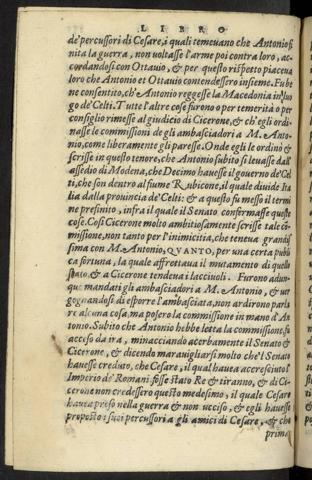 LIBRO
de' percussori di Cesare, i quali temeuano che Antonio fi
nita la guerra, non voltasse l'arme poi contra loro, ac-
cordandosi con Ottauio, & per questo rispetto piaceua
loro che Antonio et Ottauio contendessero insieme. Fu be
ne consentito, ch'Antonio reggesse la Macedonia in luo
go de' Celti. Tutte l'altre cose furono o per temerità o per
consiglio rimesse al giudicio di Cicerone, & ch'egli ordi-
nasse le commissioni de gli ambasciadori a M. Anto-
nio, come liberamente gli paresse. Onde egli le ordinò &
scrisse in questo tenore, che Antonio subito si leuasse dall'
assedio di Modena, che Decimo hauesse il gouerno de' Cel
ti, che son dentro al fiume Rubicone, il quale diuide Ita
lia dalla prouincia de' Celti: & a questo fu messo il termi
ne prefinito, infra il quale il Senato confermasse queste
cose. Così Cicerone molto ambitiosamente scrisse tale cō
missione, non tanto per l'inimicitia, che teneua grandis
sima con M. Antonio, QVANTO, per una certa publi
ca fortuna, la quale affrettaua il mutamento di quello
stato, & a Cicerone tendeua i lacciuoli. Furono adun-
que mandati gli ambasciadori a M. Antonio, & ver
gognandosi di esporre l'ambasciata, non ardirono parla
re alcuna cosa, ma posero la commissione in mano d'An
tonio. Subito che Antonio hebbe letta la commissione, fu
acceso da ira, minacciando acerbamente il Senato &
Cicerone, & dicendo marauigliarsi molto che'l Senato
hauesse creduto, che Cesare, il qual haueua accresciuto l'
Imperio de' Romani fosse stato Re & tiranno, & di Ci-
cerone non credessero questo medesimo, il quale Cesare
haueua preso nella guerra & non ucciso, & egli hauesse
proposto i suoi percussori a gli amici di Cesare, & che
prima